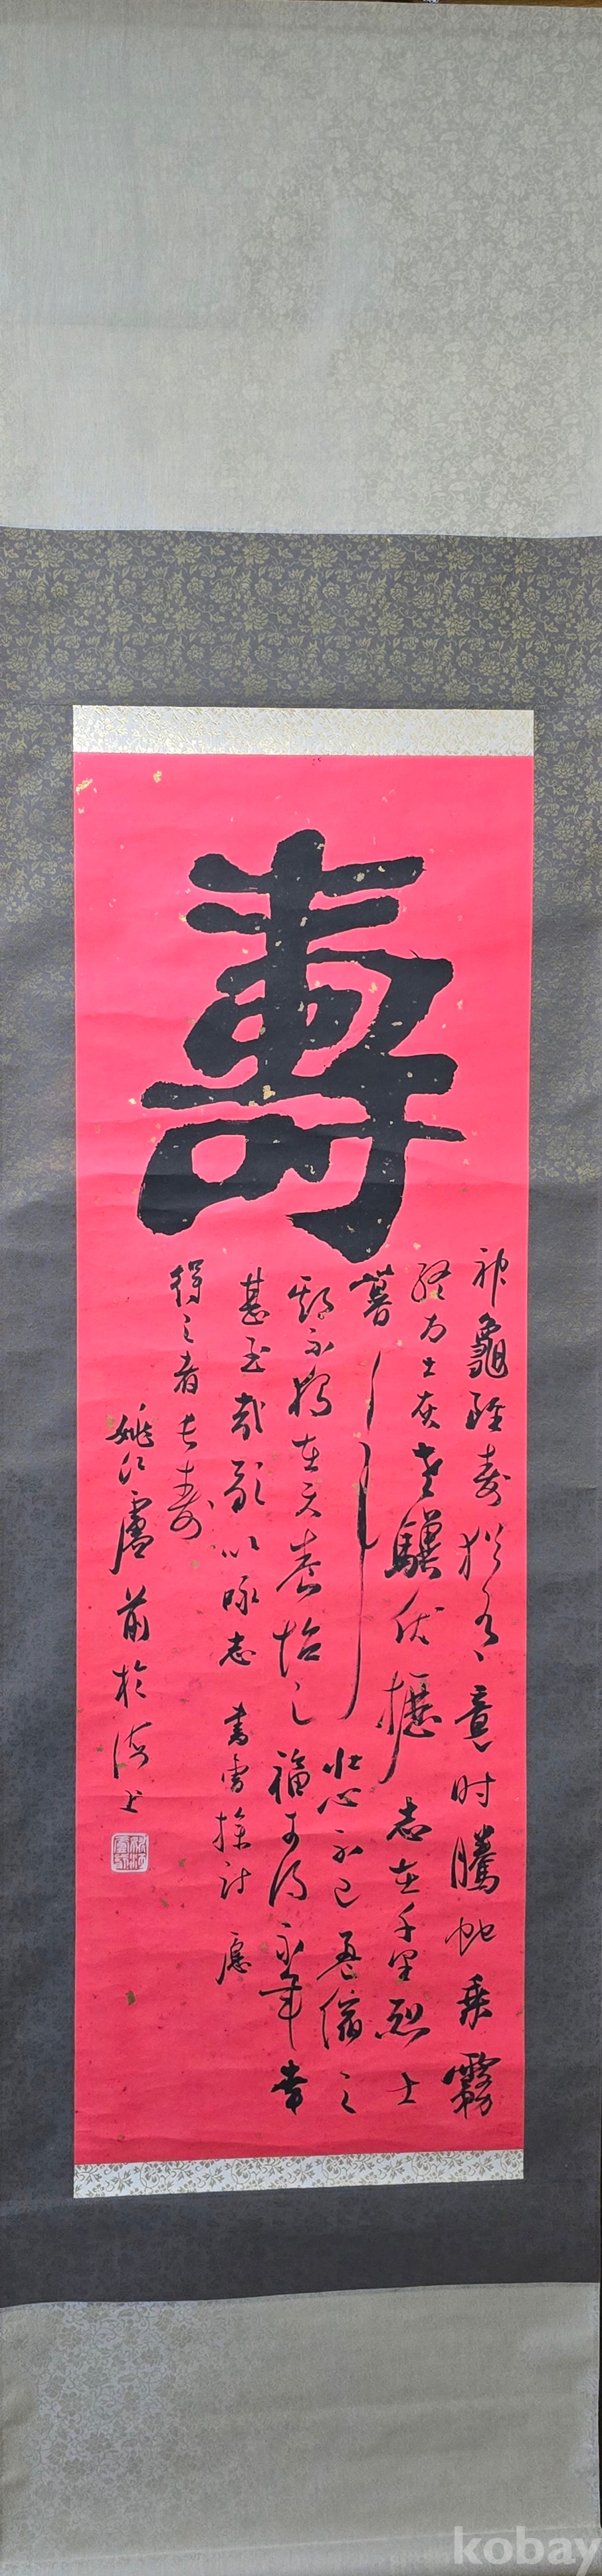 壽
神龜雖寿猶有竟时騰蛇乘霧
终为土灰老驥伏櫪志在千里烈士
暮年壮心不已盈縮之
期不独在天养怡之福可得永年幸
甚至哉歌以咏志 書曹操诗 愿
得之者长寿
姚江盧前於海上
kobay